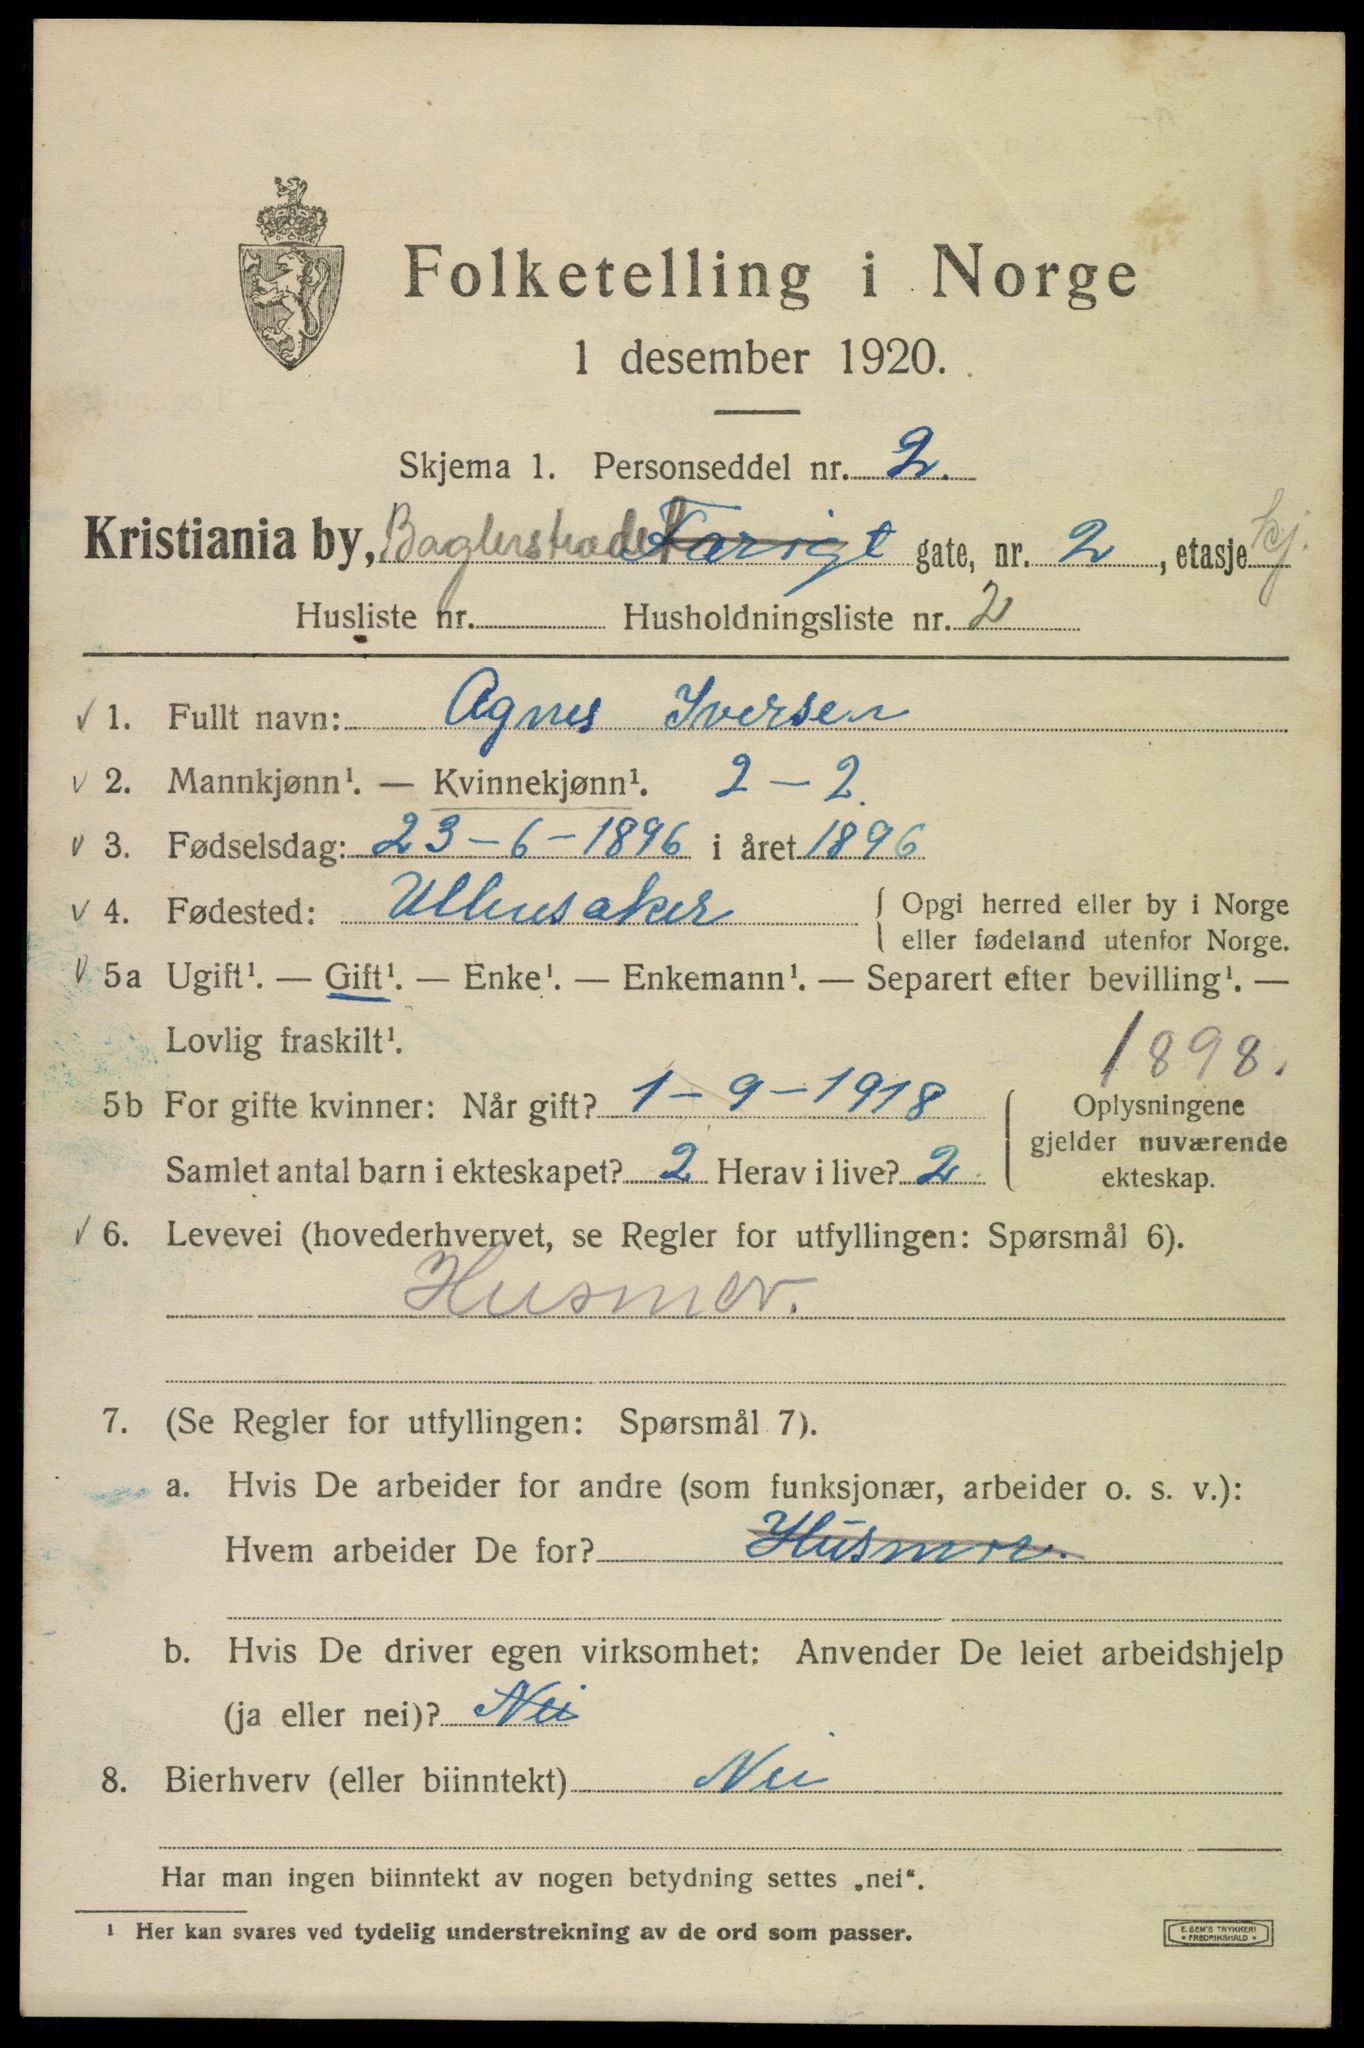 Folketelling i Norge
1 desember 1920.
Skjema 1. Personseddel nr. 2.
Kristiania by, Baglerstredet gate, nr. 2, etasje kj.
Husliste nr. Husholdningsliste nr. 2
1. Fullt navn: Agnes Iversen
2. Mannkjønn¹. — Kvinnekjønn¹. 2 – 2.
3. Fødselsdag: 23 – 6 – 1896 i året 1896
4. Fødested: Ullensaker { Opgi herred eller by i Norge
eller fødeland utenfor Norge.
5a Ugift¹. — Gift¹. — Enke¹. — Enkemann¹. — Separert efter bevilling¹. —
Lovlig fraskilt¹.
1898.
5b For gifte kvinner: Når gift? 1 – 9 – 1918
Samlet antal barn i ekteskapet? 2 Herav i live? 2
Oplysningene
gjelder nuværende
ekteskap.
6. Levevei (hovederhvervet, se Regler for utfyllingen: Spørsmål 6).
Husmor.
7. (Se Regler for utfyllingen: Spørsmål 7).
a. Hvis De arbeider for andre (som funksjonær, arbeider o. s. v.):
Hvem arbeider De for? Husmor.
b. Hvis De driver egen virksomhet: Anvender De leiet arbeidshjelp
(ja eller nei)? Nei
8. Bierhverv (eller biinntekt) Nei
Har man ingen biinntekt av nogen betydning settes „nei“.
¹ Her kan svares ved tydelig understrekning av de ord som passer.
E. SEM'S TRYKKERI
• FREDRIKSHALD •